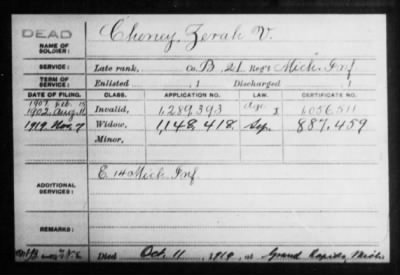 DEAD
NAME OF SOLDIER:
Cheney, Zerah V.
SERVICE:
Late rank, Co. B, 21 Reg't Mich. Inf
TERM OF SERVICE:
Enlisted , 1 Discharged , 1
DATE OF FILING. CLASS. APPLICATION NO. LAW. CERTIFICATE NO.
1902, Aug. 11 Invalid, 1,289,393 1,056,511
1919, Nov. 7 Widow, 1,148,418 Sep. 887,459
Minor,
ADDITIONAL SERVICES:
E 14 Mich Inf
REMARKS:
Died Oct. 11, 1919, at Grand Rapids, Mich.